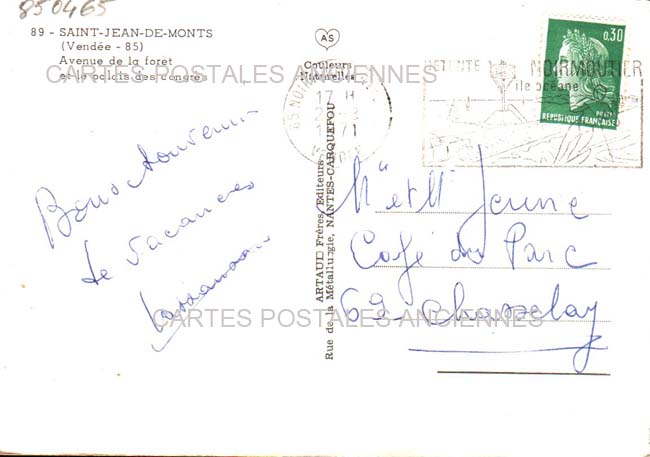 850465
89 - SAINT-JEAN-DE-MONTS
(Vendée - 85)
Avenue de la foret
et le palais des congrès
CARTES POSTALES ANCIENNES
AS
Couleurs
Naturelles
85 NOIRM
17 H
1971
VENDEE
DETENTE NOIRMOUTIER
île océane
0,30
POSTES
REPUBLIQUE FRANÇAISE
Bons souvenirs
de vacances
ARTAUD Frères, Editeurs
Rue de la Métallurgie, NANTES-CARQUEFOU
Mr et Me Jeune
Café du Parc
69 Chasselay
CARTES POSTALES ANCIENNES